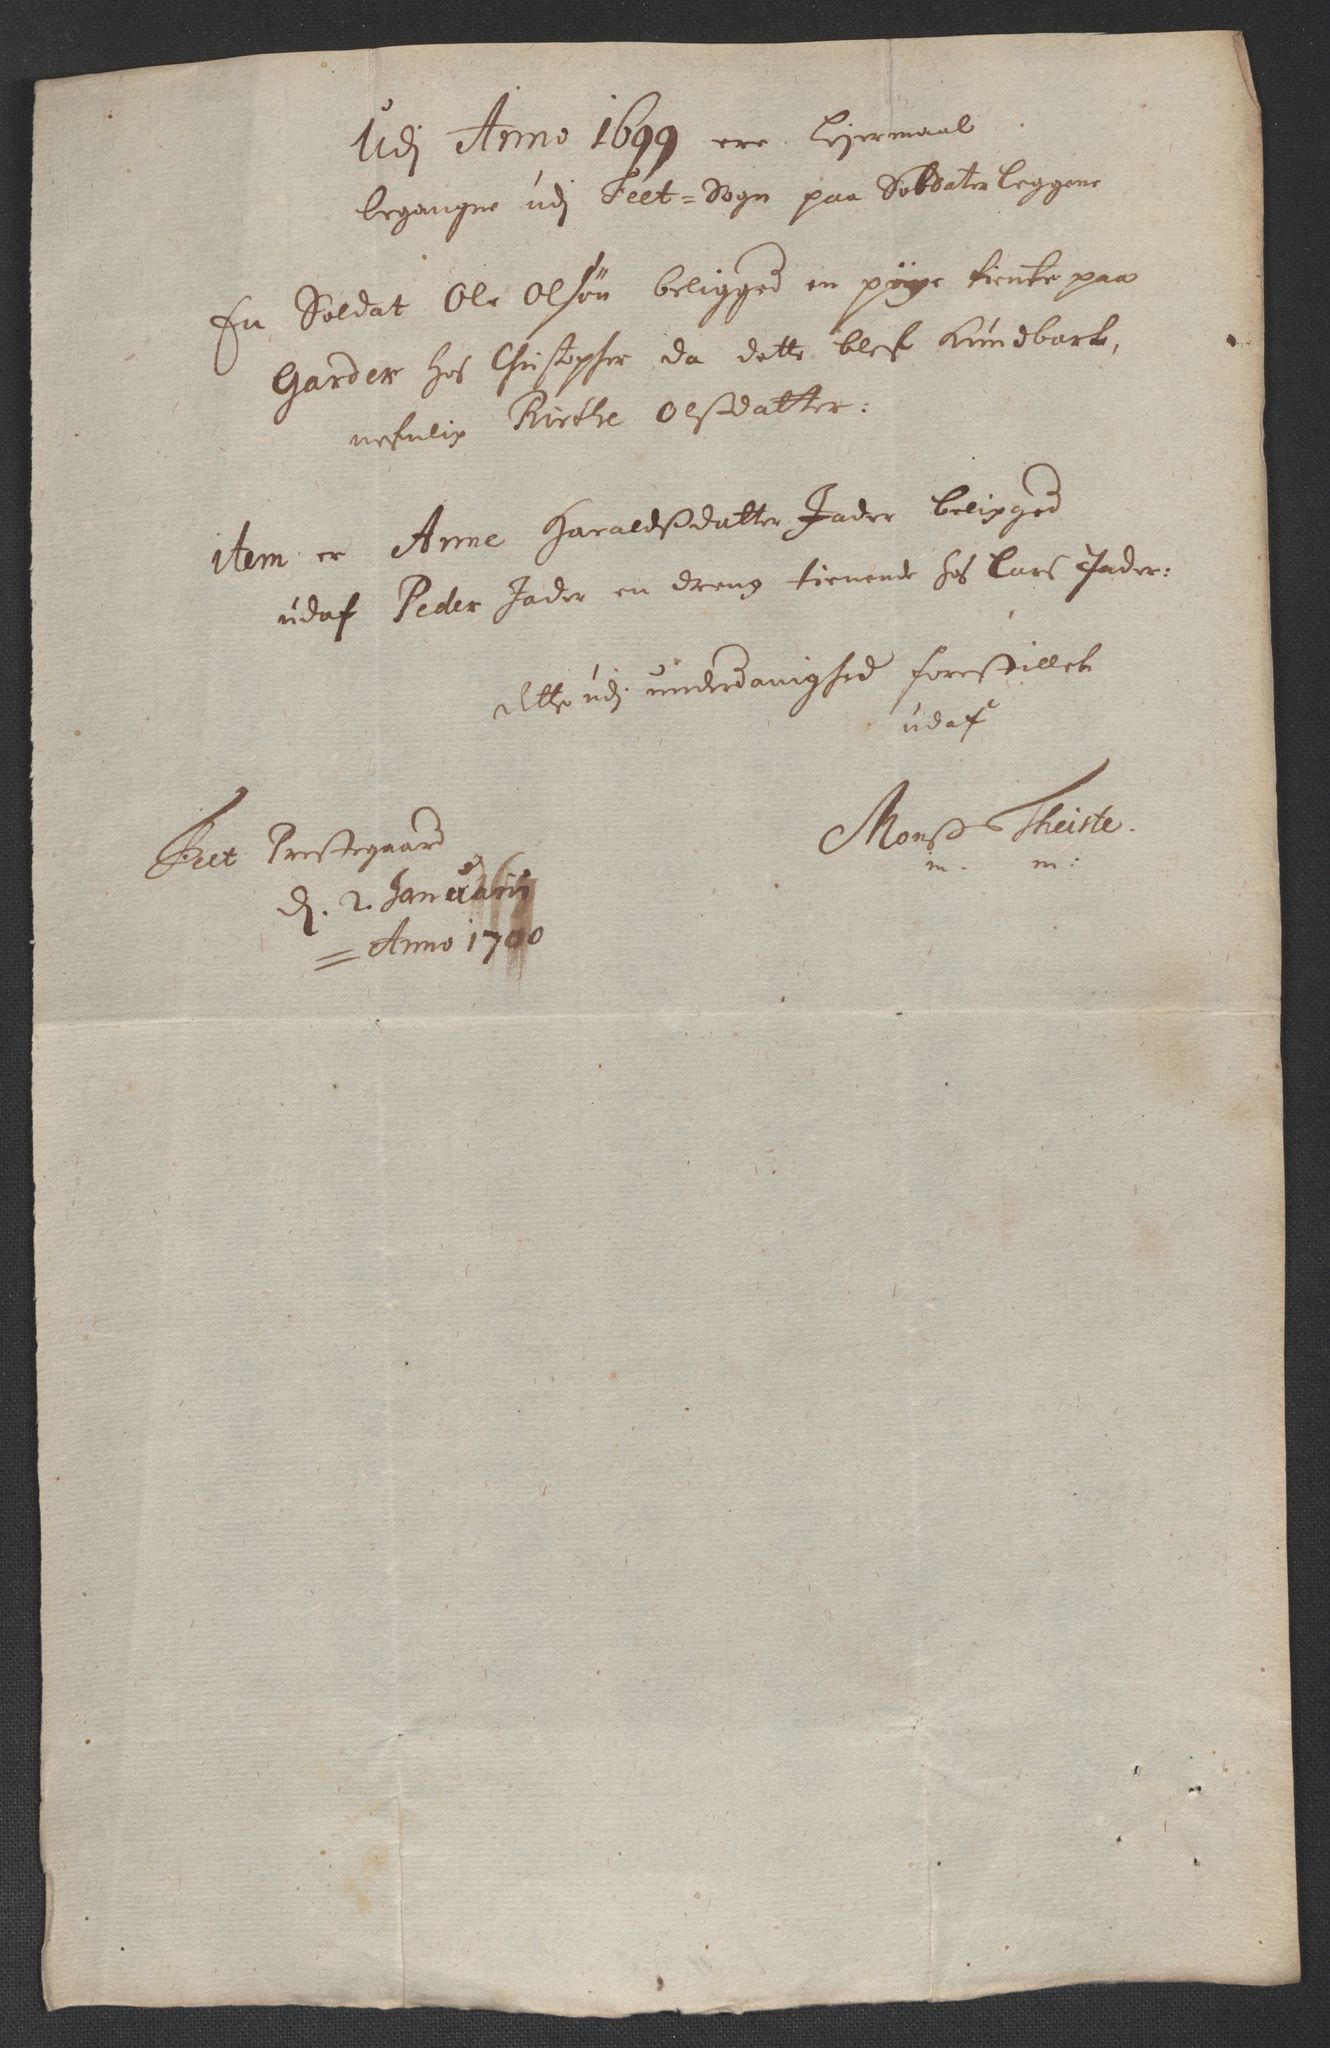 Udj Anno 1699 ere Lejermaal
begangne udj Feet=Sogn paa Soldater leggene
En Soldat Ole Olsøn beligged en pige tiente paa
Garder hos Christopher da dette blef Kundbart,
nefnlig Kirsthe Olsdatter:
item er Anne Haraldsdatter Jader beligged
udaf Peder Jader en dreng tienende hos Lars Jader:
dette udj underdanighed forestillet
udaf
Feet Prestegaard
d. 2. Januarij
= Anno 1700
Monss Theiste.
m. m: